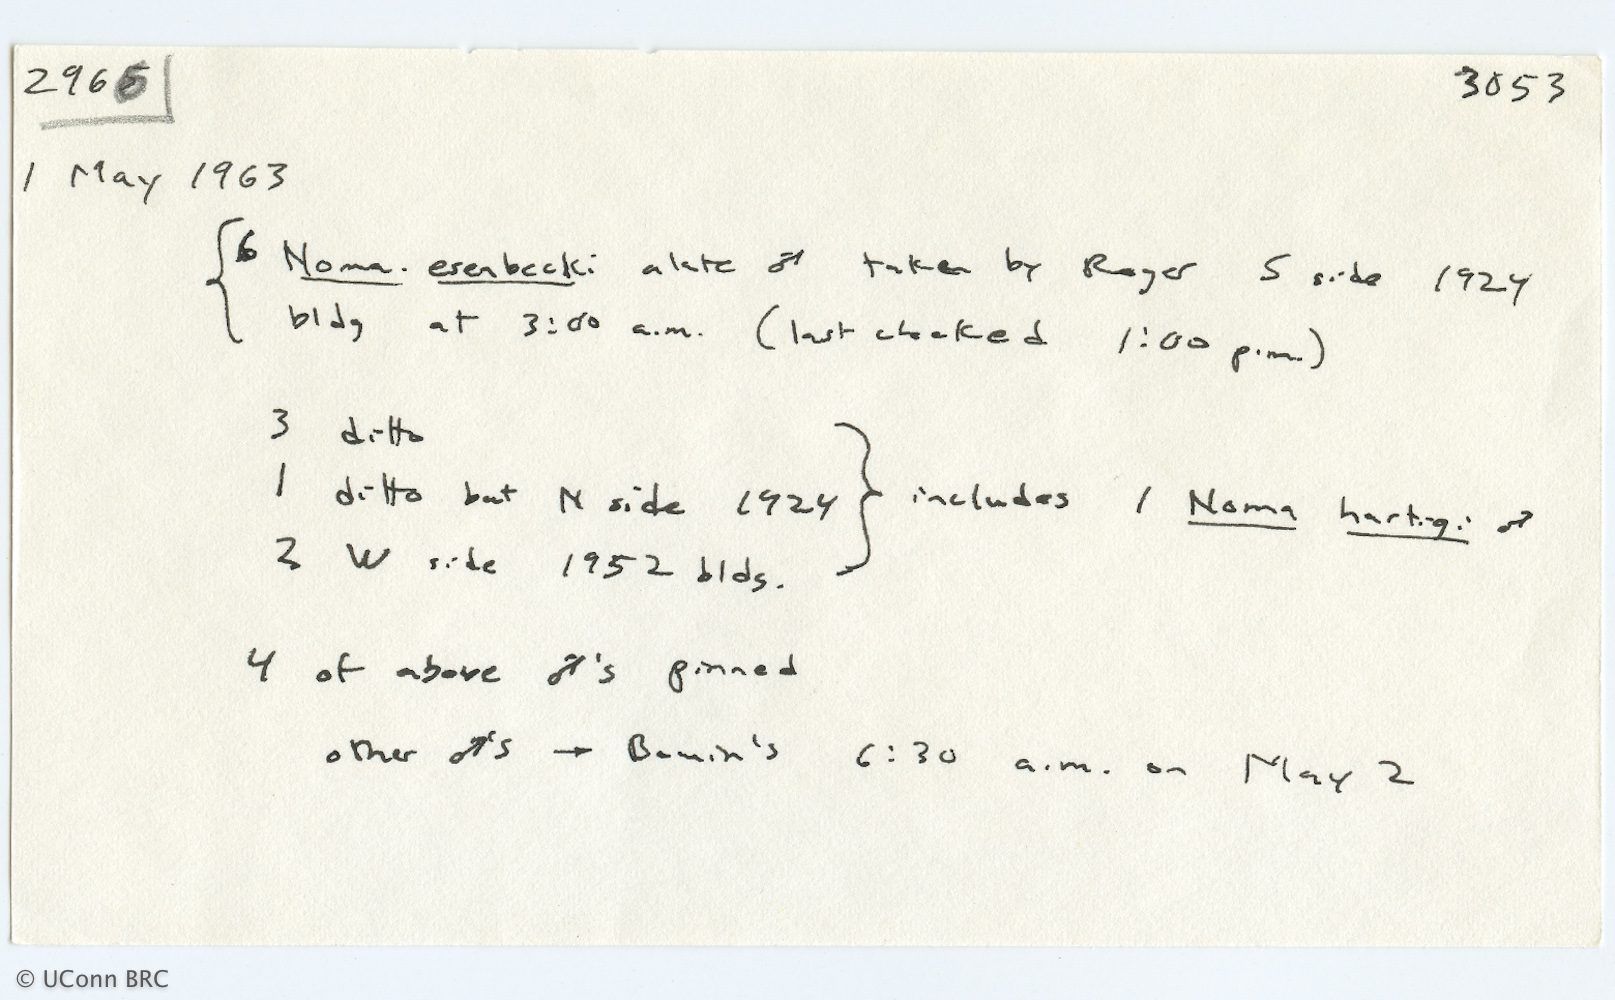 2965 3053
1 May 1963
6 Noma. esenbecki alate ♂ taken by Roger S side 1924
bldg at 3:00 a.m. (last checked 1:00 p.m.)
3 ditto
1 ditto but N side 1924 } includes 1 Noma hartigi ♂
2 W side 1952 blds.
4 of above ♂'s pinned
other ♂'s → 6:30 a.m. on May 2
© UConn BRC